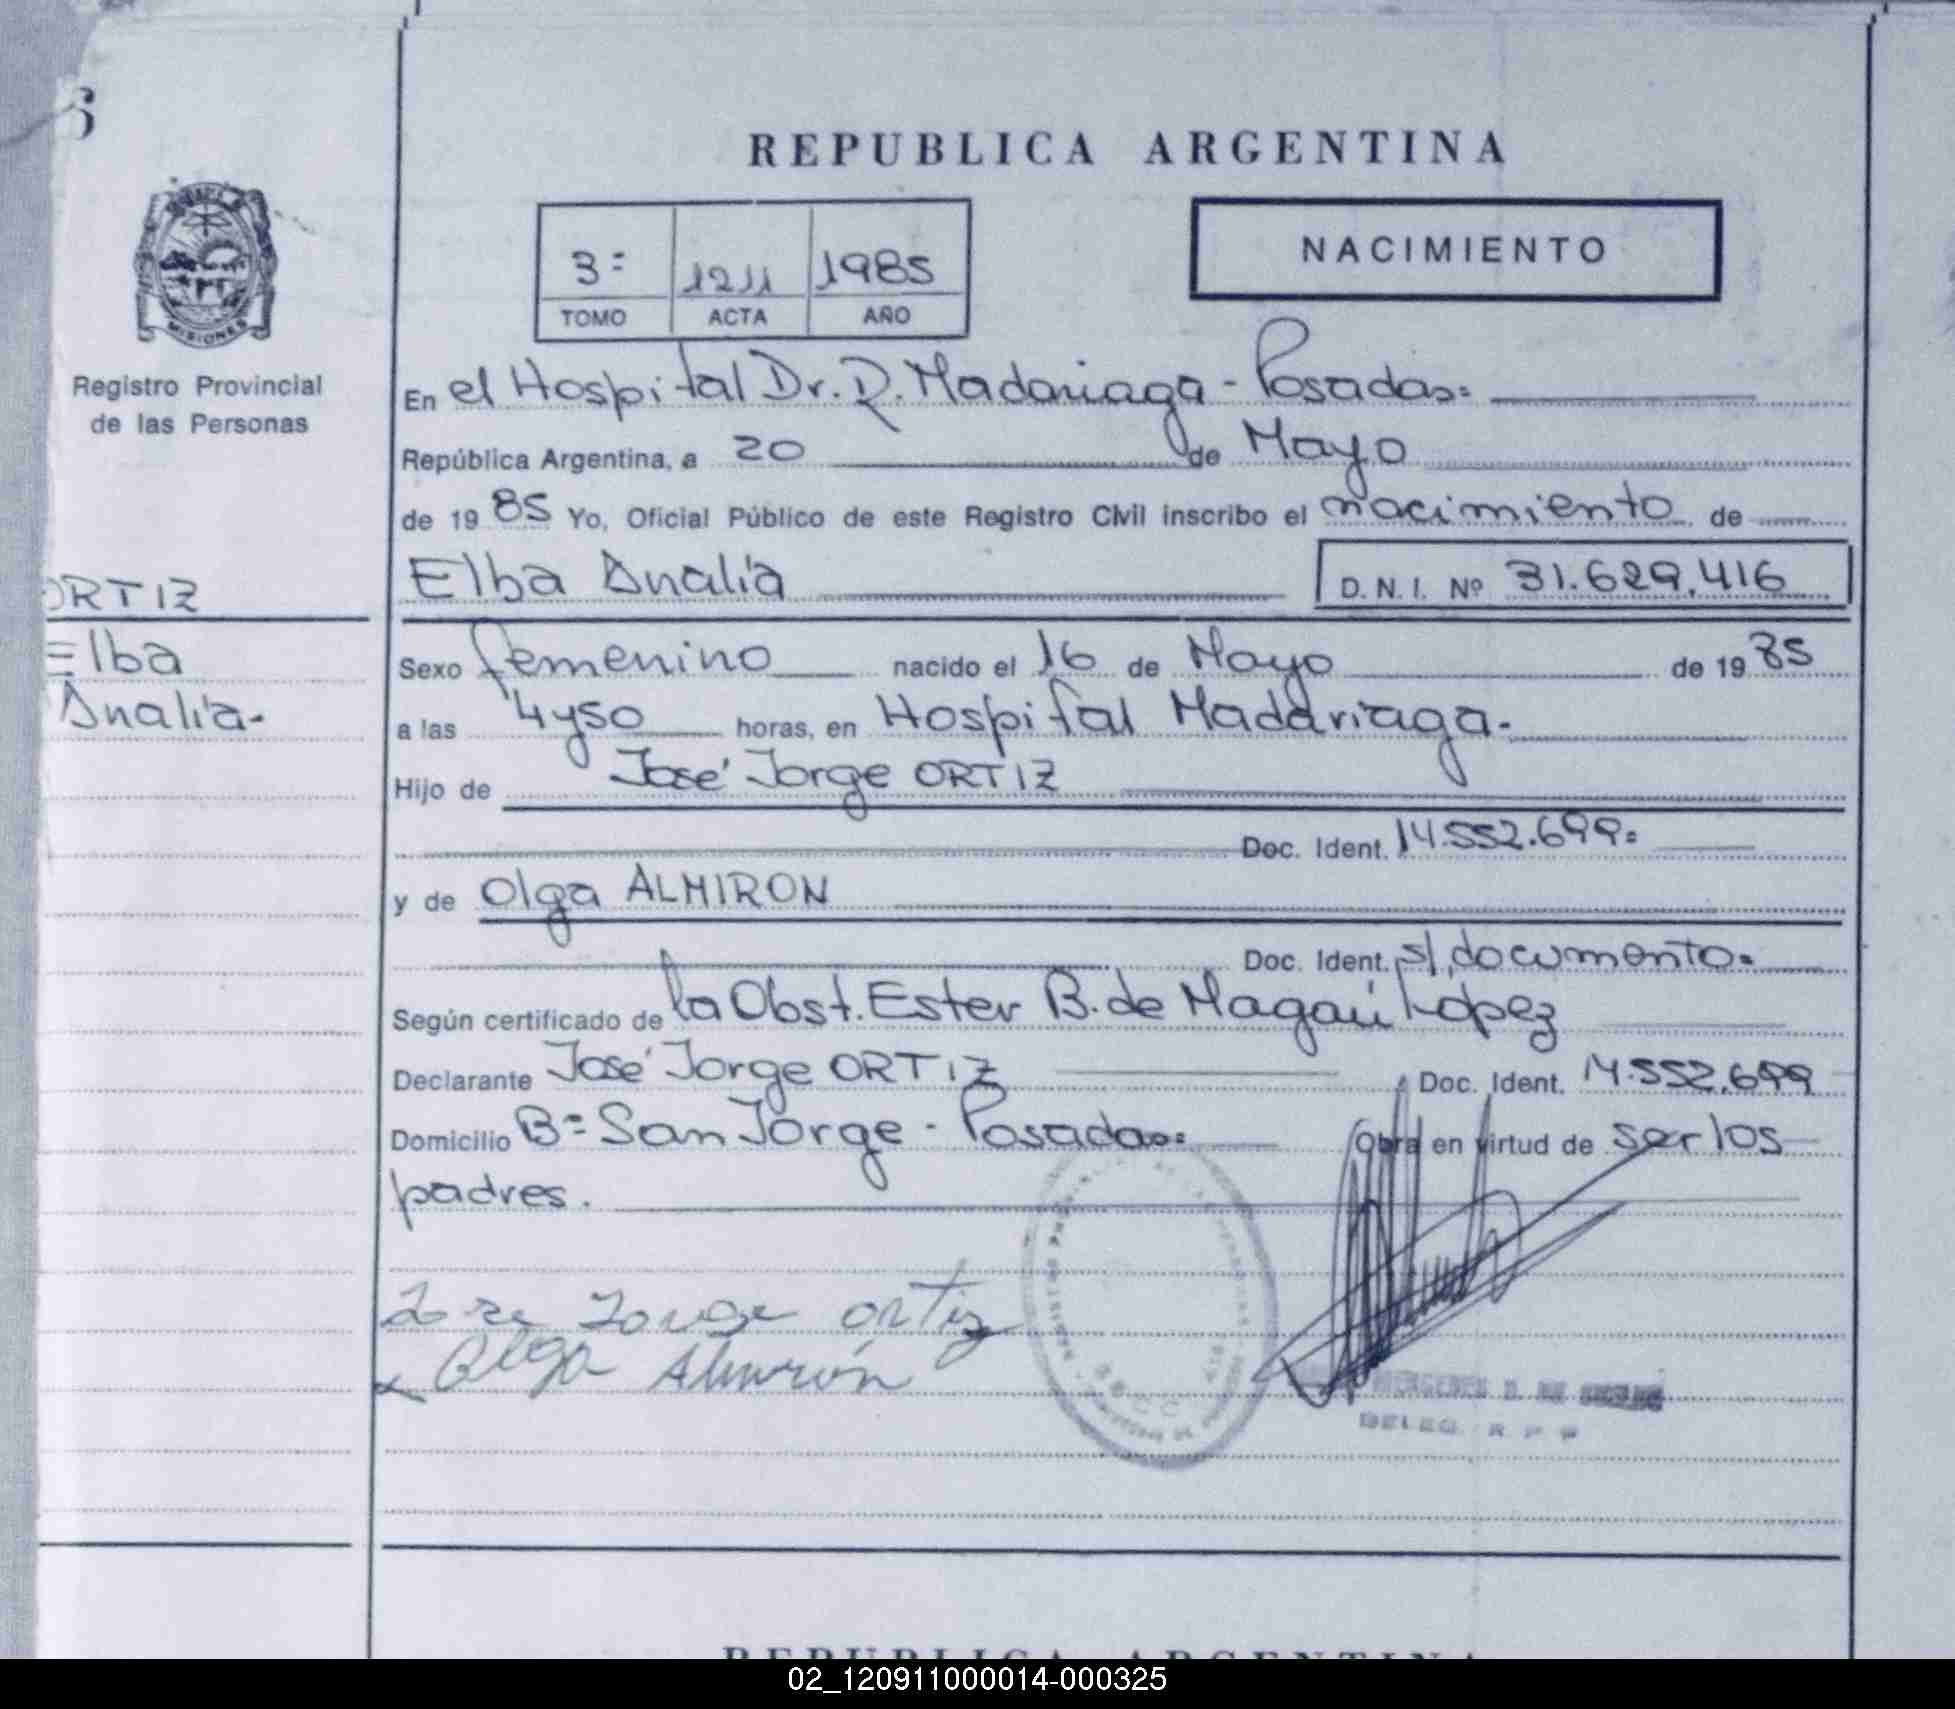 REPUBLICA ARGENTINA
MISIONES
Registro Provincial
de las Personas
3=
1211
1985
TOMO
ACTA
AÑO
NACIMIENTO
En el Hospital Dr. R. Madariaga - Posadas=
República Argentina, a 20 de Mayo
de 1985 Yo, Oficial Público de este Registro Civil inscribo el nacimiento de
Elba Analía D.N.I. Nº 31.629.416
ORTIZ
Elba
Analía-
Sexo femenino nacido el 16 de Mayo de 1985
a las 4y50 horas, en Hospital Madariaga-
Hijo de José Jorge ORTIZ
Doc. Ident. 14.552.699=
y de Olga ALMIRON
Doc. Ident. s/documento=
Según certificado de la Obst. Ester B. de López
Declarante José Jorge ORTIZ Doc. Ident. 14.552.699
Domicilio B= San Jorge - Posadas= Obra en virtud de ser los
padres.
Jose Jorge ortiz
Olga Almirón
DELEG. R P P
REPUBLICA ARGENTINA
02_120911000014-000325